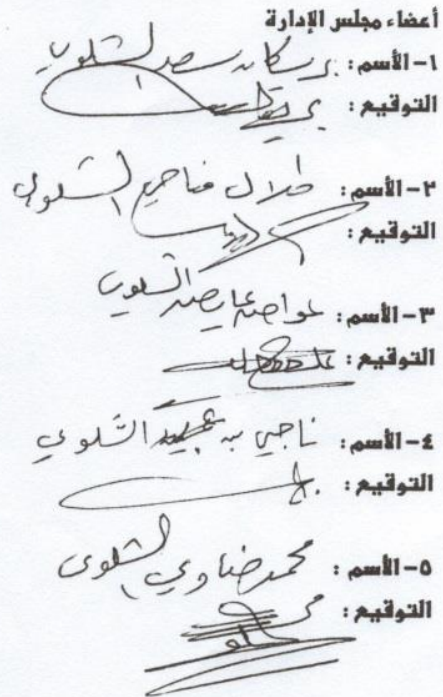 أعضاء مجلس الإدارة
١- الأسم : سعد الشلوي
التوقيع :
٢- الأسم : طلال ضاحي الشلوي
التوقيع :
٣- الأسم : عواض عايض الشلوي
التوقيع :
٤- الأسم : ناجي بن الشلوي
التوقيع :
٥- الأسم : محمد ضاوي الشلوي
التوقيع :